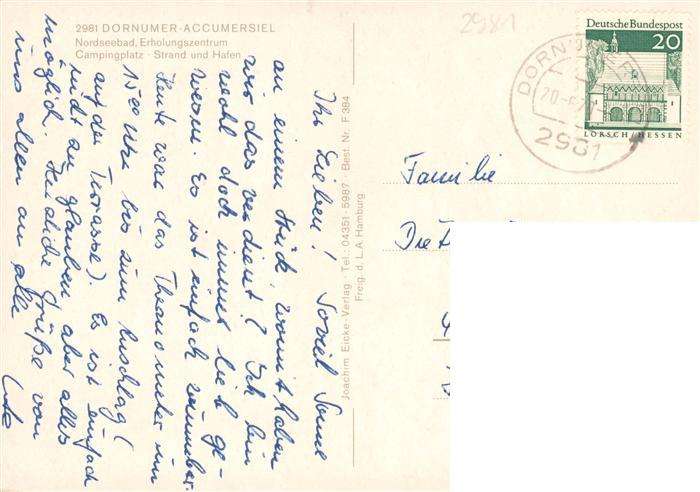 2981 DORNUMER-ACCUMERSIEL
Nordseebad, Erholungszentrum
Campingplatz · Strand und Hafen
Ihr Lieben! Soviel Sonne
an einem Stück, womit haben
wir das verdient? Ich bin
wohl doch immer lieb ge-
wesen. Es ist einfach wunderbar.
Heute war das Thermometer um
15 00 Uhr bis zum Anschlag (
auf der Terrasse). Es ist einfach
nicht zu glauben, aber alles
möglich. Herzliche Grüße von
uns allen an alle
Joachim Eicke-Verlag · Tel.: 04351-5987 · Best. Nr. F 384
Freig. d. L.A. Hamburg
2981
Deutsche Bundespost
20
LORSCH/HESSEN
2981
Familie